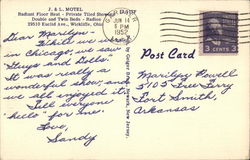 J. & L. MOTEL
Radiant Floor Heat - Private Tiled Showers
Double and Twin Beds - Radios
29510 Euclid Ave., Wickliffe, Ohio
Dear Marilyn -
While we were
in Chicago, we saw
"Guys and Dolls".
It was really a
wonderful show, and
we all enjoyed it.
Tell everyone
"hello" for me.
Love,
Sandy
JUN 14
PM
1952
3 CENTS 3
Post Card
Marilyn Rowell
5105 Free Ferry
Fort Smith,
Arkansas